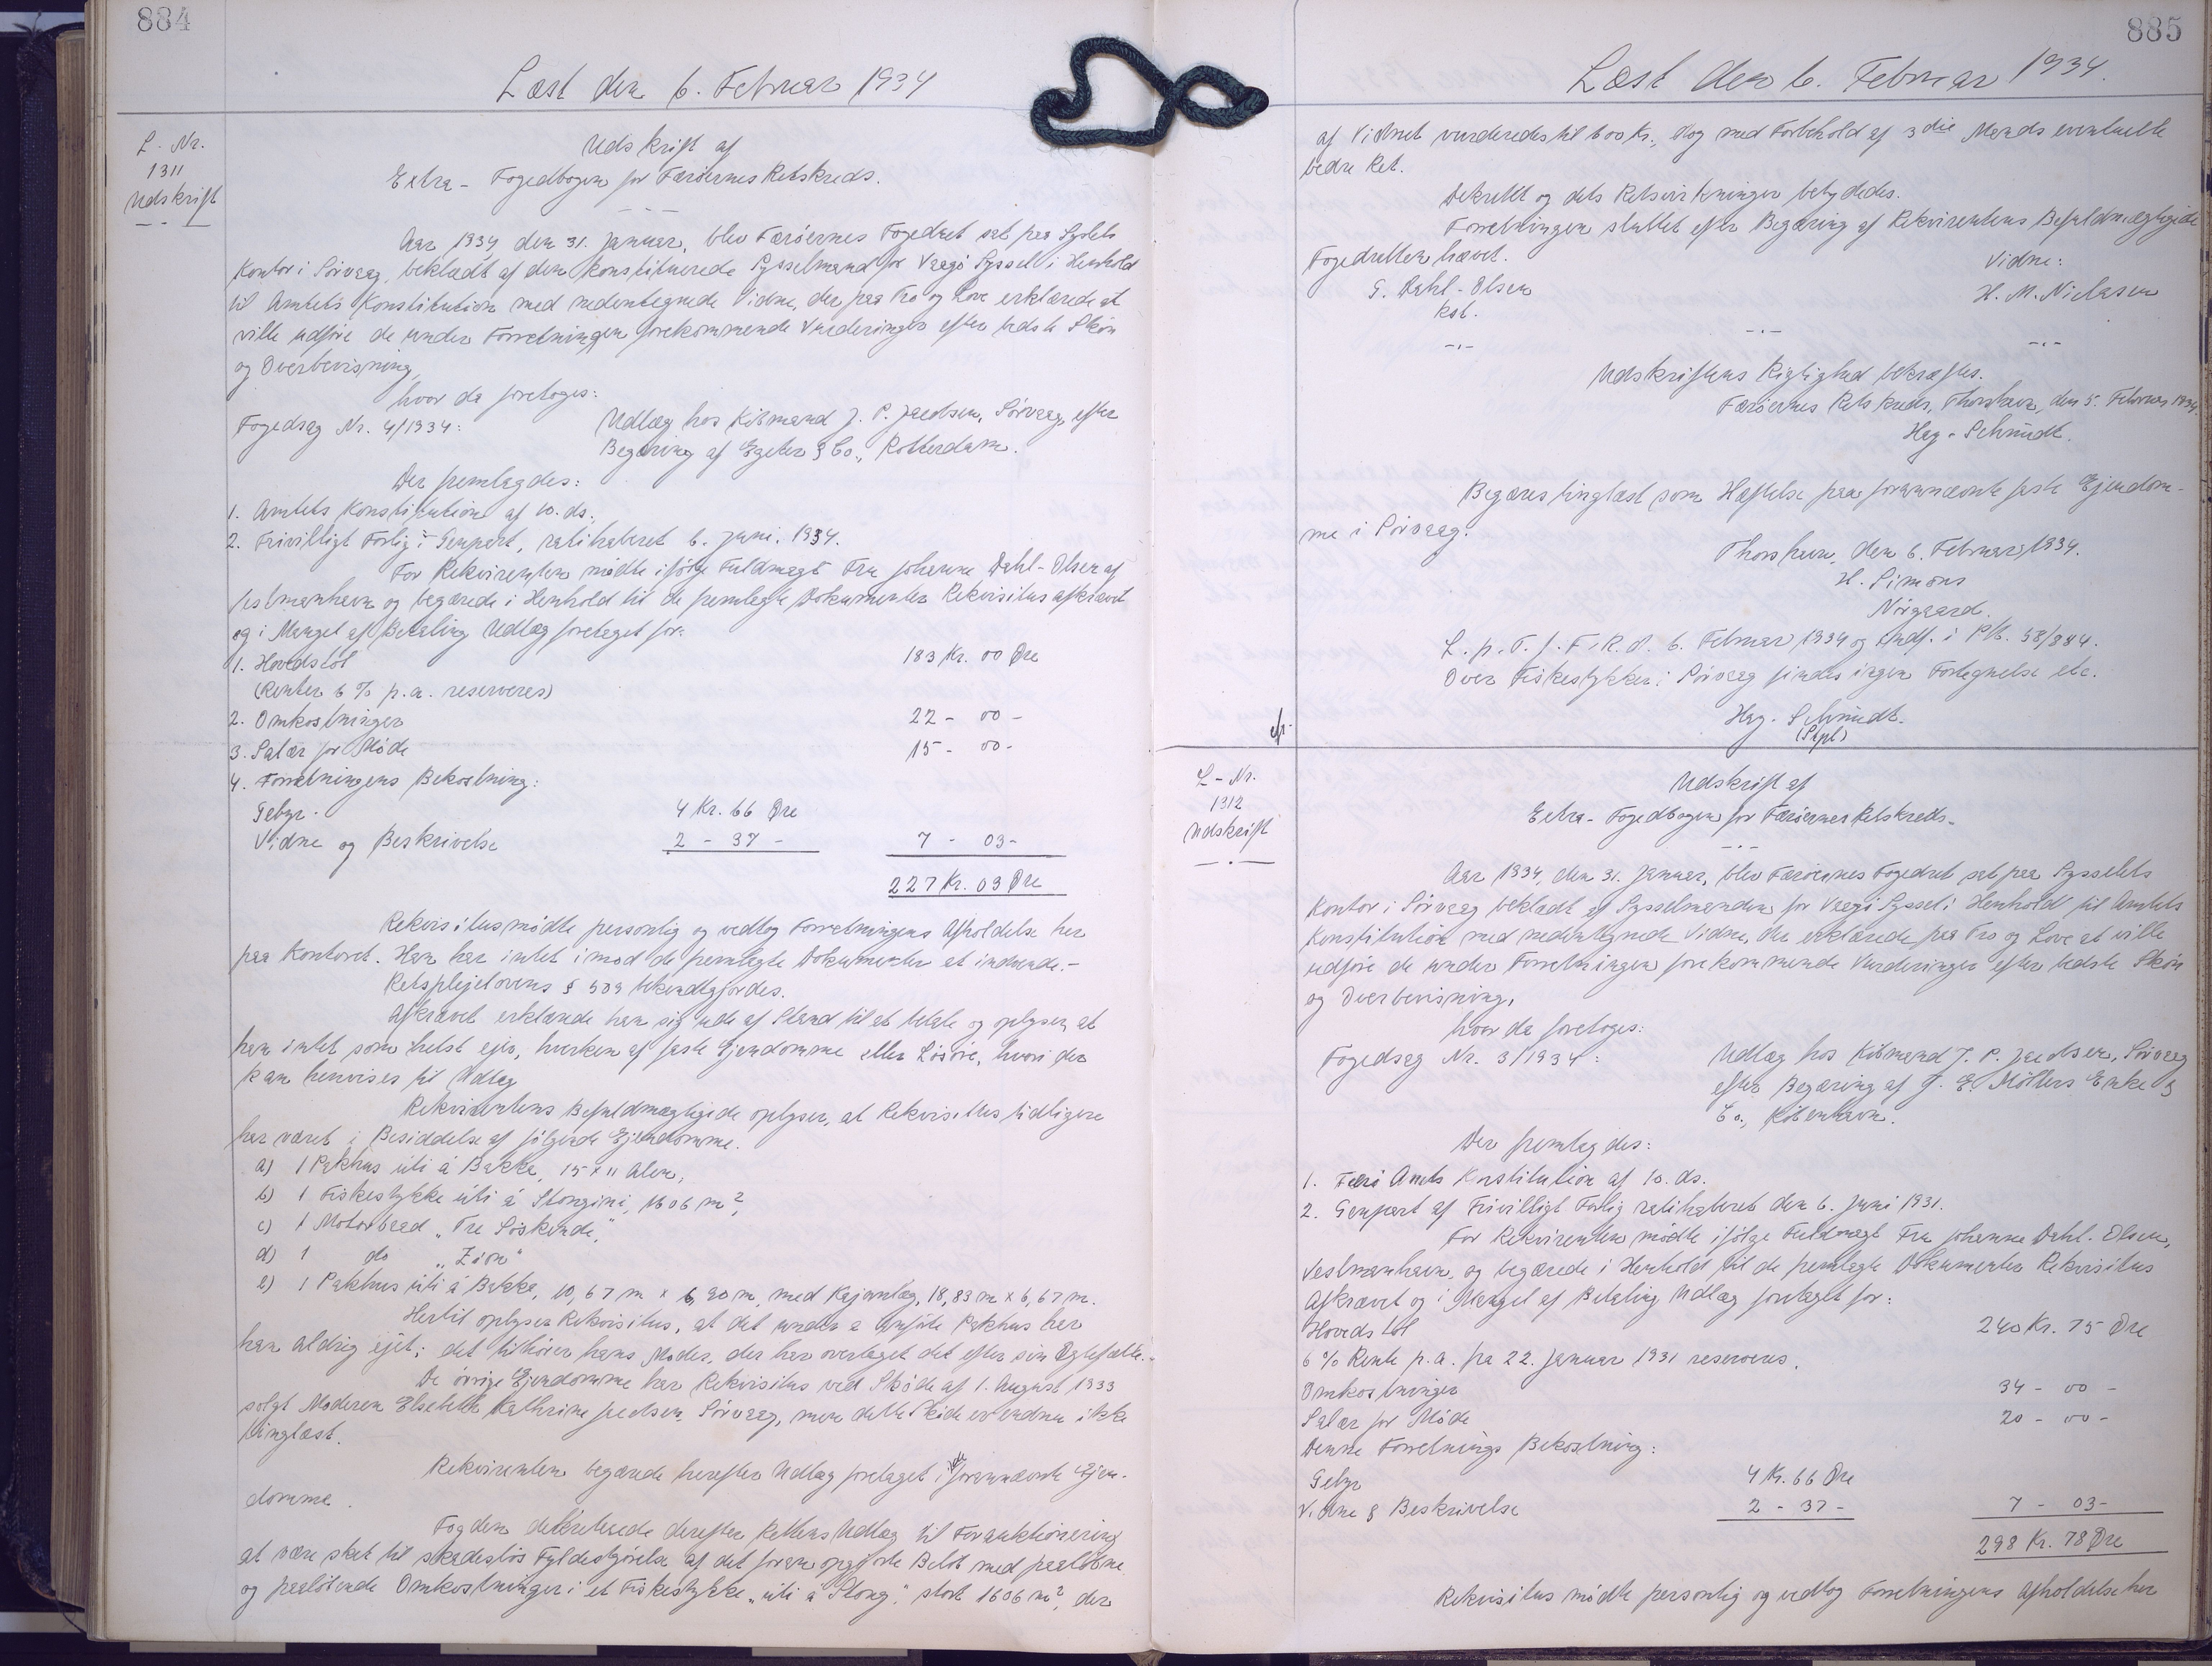 884
Læst den 6. Februar 1934
L. Nr.
1311
Udskrift
Udskrift af
Extra-Fogedbogen for Færöernes Retskreds.
Aar 1934 den 31. Januar, blev Færöernes Fogedret sat paa Syslets
Kontor i Sörvaag, beklædt af den konstituerede Sysselmand for Vaagö Syssel i Henhold
til Amtets Konstitution med nedentegnede Vidne, der paa Tro og Love erklærede at
ville udföre de under Forretningen forekommende Vurderinger efter bedste Skön
og Overbevisning,
hvor da foretoges:
Fogedsag Nr. 4/1934:
Udlæg hos Köbmand J. P. Jacobsen, Sörvaag, efter
Begæring af Egeter & Co., Rotterdam.
Der fremlagdes:
1. Amtets Konstitution af 10. ds.,
2. Frivilligt Forlig i Genpert, ratihaberet 6. Juni. 1934.
For Rekvirenten mödte ifölge Fuldmagt Fru Johanne Dahl-Olsen af
Vestmanhavn og begærede i Henhold til de fremlagte Dokumenter Rekvisitus afkrævet
og i Mangel af Betaling Udlæg foretaget for:
1. Hovedstol 183 Kr. 00 Øre
(Renter 6 % p.a. reserveres)
2. Omkostninger 22 - 00 -
3. Salær for Möde 15 - 00 -
4. Forretningens Bekostning:
Gebyr. 4 Kr. 66 Øre
Vidne og Beskrivelse 2 - 37 - 7 - 03 -
227 Kr. 03 Øre
Rekvisitus mödte personlig og vedtog Forretningens Afholdelse her
paa Kontoret. Han har intet imod de fremlagte Dokumenter at indvende.-
Retsplejelovens § 509 bekendtgjordes.
Afkrævet erklærede han sig ude af Stand til at betale og oplyser, at
han intet som helst ejer, hverken af faste Ejendomme eller Lösöre, hvori der
kan henvises til Udlæg
Rekvirentens Befuldmægtigede oplyser, at Rekvisitus tidligere
har været i Besiddelse af fölgende Ejendomme.
a) 1 Pakhus úti á Bakka, 15 x 11 Alen,
b) 1 Fiskestykke úti á Stongini, 1606 m²,
c) 1 Motorbaad „Tre Söskende",
d) 1 do „Zion"
e) 1 Pakhus úti á Bakka, 10,67 m x 6,90 m, med Kajanlæg, 18,83 m x 6,67 m.
Hertil oplyser Rekvisitus, at det under a anförte Pakhus har
han aldrig ejet; det tilhörer hans Moder, der har overtaget det efter sin Ægtefælle.-
De övrige Ejendomme har Rekvisitus ved Sköde af 1. August 1933
solgt Moderen Elsebeth Kathrine Jacobsen, Sörvaag, men dette Sköde er endnu ikke
tinglæst.
Rekvirenten begærede herefter Udlæg foretaget i forannævnte Ejen-
domme.
Fogden dekreterede derefter Rettens Udlæg til Forauktionering
at være sket til skadeslös Fyldestgörelse af det foran opgjorte Belöb med paalöbne
og paalöbende Omkostninger i et Fiskestykke „úti á Stong", stort 1606 m², der
885
Læst den 6. Februar 1934.
af Vidnet vurderedes til 600 Kr., dog med Forbehold af 3die Mands eventuelle
bedre Ret.
Dekretet og dets Retsvirkninger betydedes.
Forretningen sluttet efter Begæring af Rekvirentens Befuldmægtigede
Fogedretten hævet.
Vidne:
G. Dahl-Olsen
H. M. Niclasen
kst.
Udskriftens Rigtighed bekræftes.
Færöernes Retskreds, Thorshavn, den 5. Februar 1934.
Hag. Schmidt.
Begæres tinglæst som Hæftelse paa forannævnte faste Ejendom-
me i Sörvaag.
Thorshavn, den 6. Februar 1934.
H. Simons
Nörgaard.
L. p. T. f. F. R. d. 6. Februar 1934 og indf. i Ptb. 58/884.
Over Fiskestykker i Sörvaag findes ingen Fortegnelse etc.
Hag. Schmidt.
L-Nr.
1312
Udskrift
Udskrift af
Extra-Fogedbogen for Færöernes Retskreds.
Aar 1934, den 31. Januar, blev Færöernes Fogedret sat paa Sysselets
Kontor i Sörvaag beklædt af Sysselmanden for Vaagö Syssel i Henhold til Amtets
Konstitution med nedentegnede Vidne, der erklærede paa Tro og Love at ville
udföre de under Forretningen forekommende Vurderinger efter bedste Skön
og Overbevisning,
hvor da foretoges:
Fogedsag Nr. 3/1934:
Udlæg hos Köbmand J. P. Jacobsen, Sörvaag
efter Begæring af J. E. Möllers Enke &
Co., Köbenhavn.
Der fremlagdes:
1. Færö Amts Konstitution af 10. ds.
2. Genpart af Frivilligt Forlig ratihaberet den 6. Juni 1931.
For Rekvirenten mödte ifölge Fuldmagt Fru Johanne Dahl-Olsen,
Vestmanhavn, og begærede i Henhold til de fremlagte Dokumenter Rekvisitus
Afkrævet og i Mangel af Betaling Udlæg foretaget for:
Hovedstol 240 Kr. 75 Øre
6 % Rente p.a. fra 22. Januar 1931 reserveres.
Omkostninger 34 - 00 -
Salær for Möde 20 - 00 -
Denne Forretnings Bekostning:
Gebyr 4 Kr. 66 Øre
Vidne & Beskrivelse 2 - 37 - 7 - 03 -
298 Kr. 78 Øre
Rekvisitus mödte personlig og vedtog Forretningens Afholdelse her